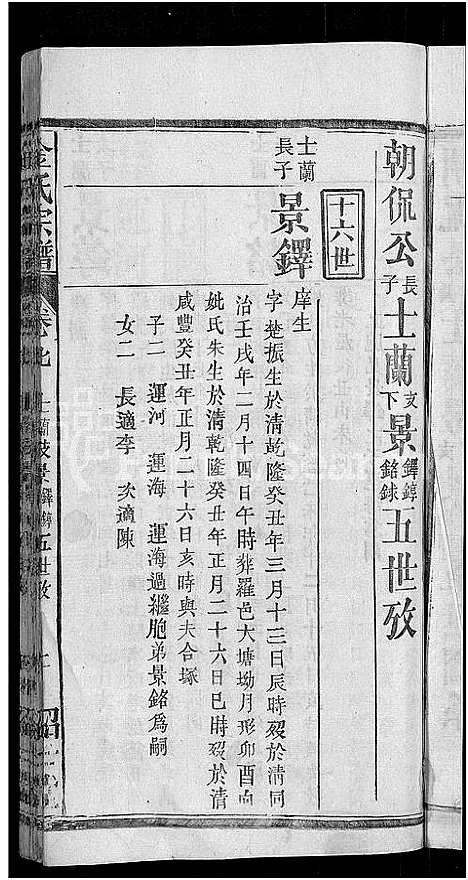 朝侃公長子士蘭支下景鐸錞銘銶五世攷
十六世
士蘭長子
景鐸
庠生
字楚振生於清乾隆癸丑年三月十三日辰時殁於清同
治壬戌年二月十四日午時葬羅邑大塘坳月形卯酉向
妣氏朱生於清乾隆癸丑年正月二十六日巳時殁於清
咸豐癸丑年正月二十六日亥時與夫合塚
子二 運河 運海 運海過繼胞弟景銘為嗣
女二 長適李 次適陳
金氏宗譜 卷之 士蘭支景鐸 五世攷